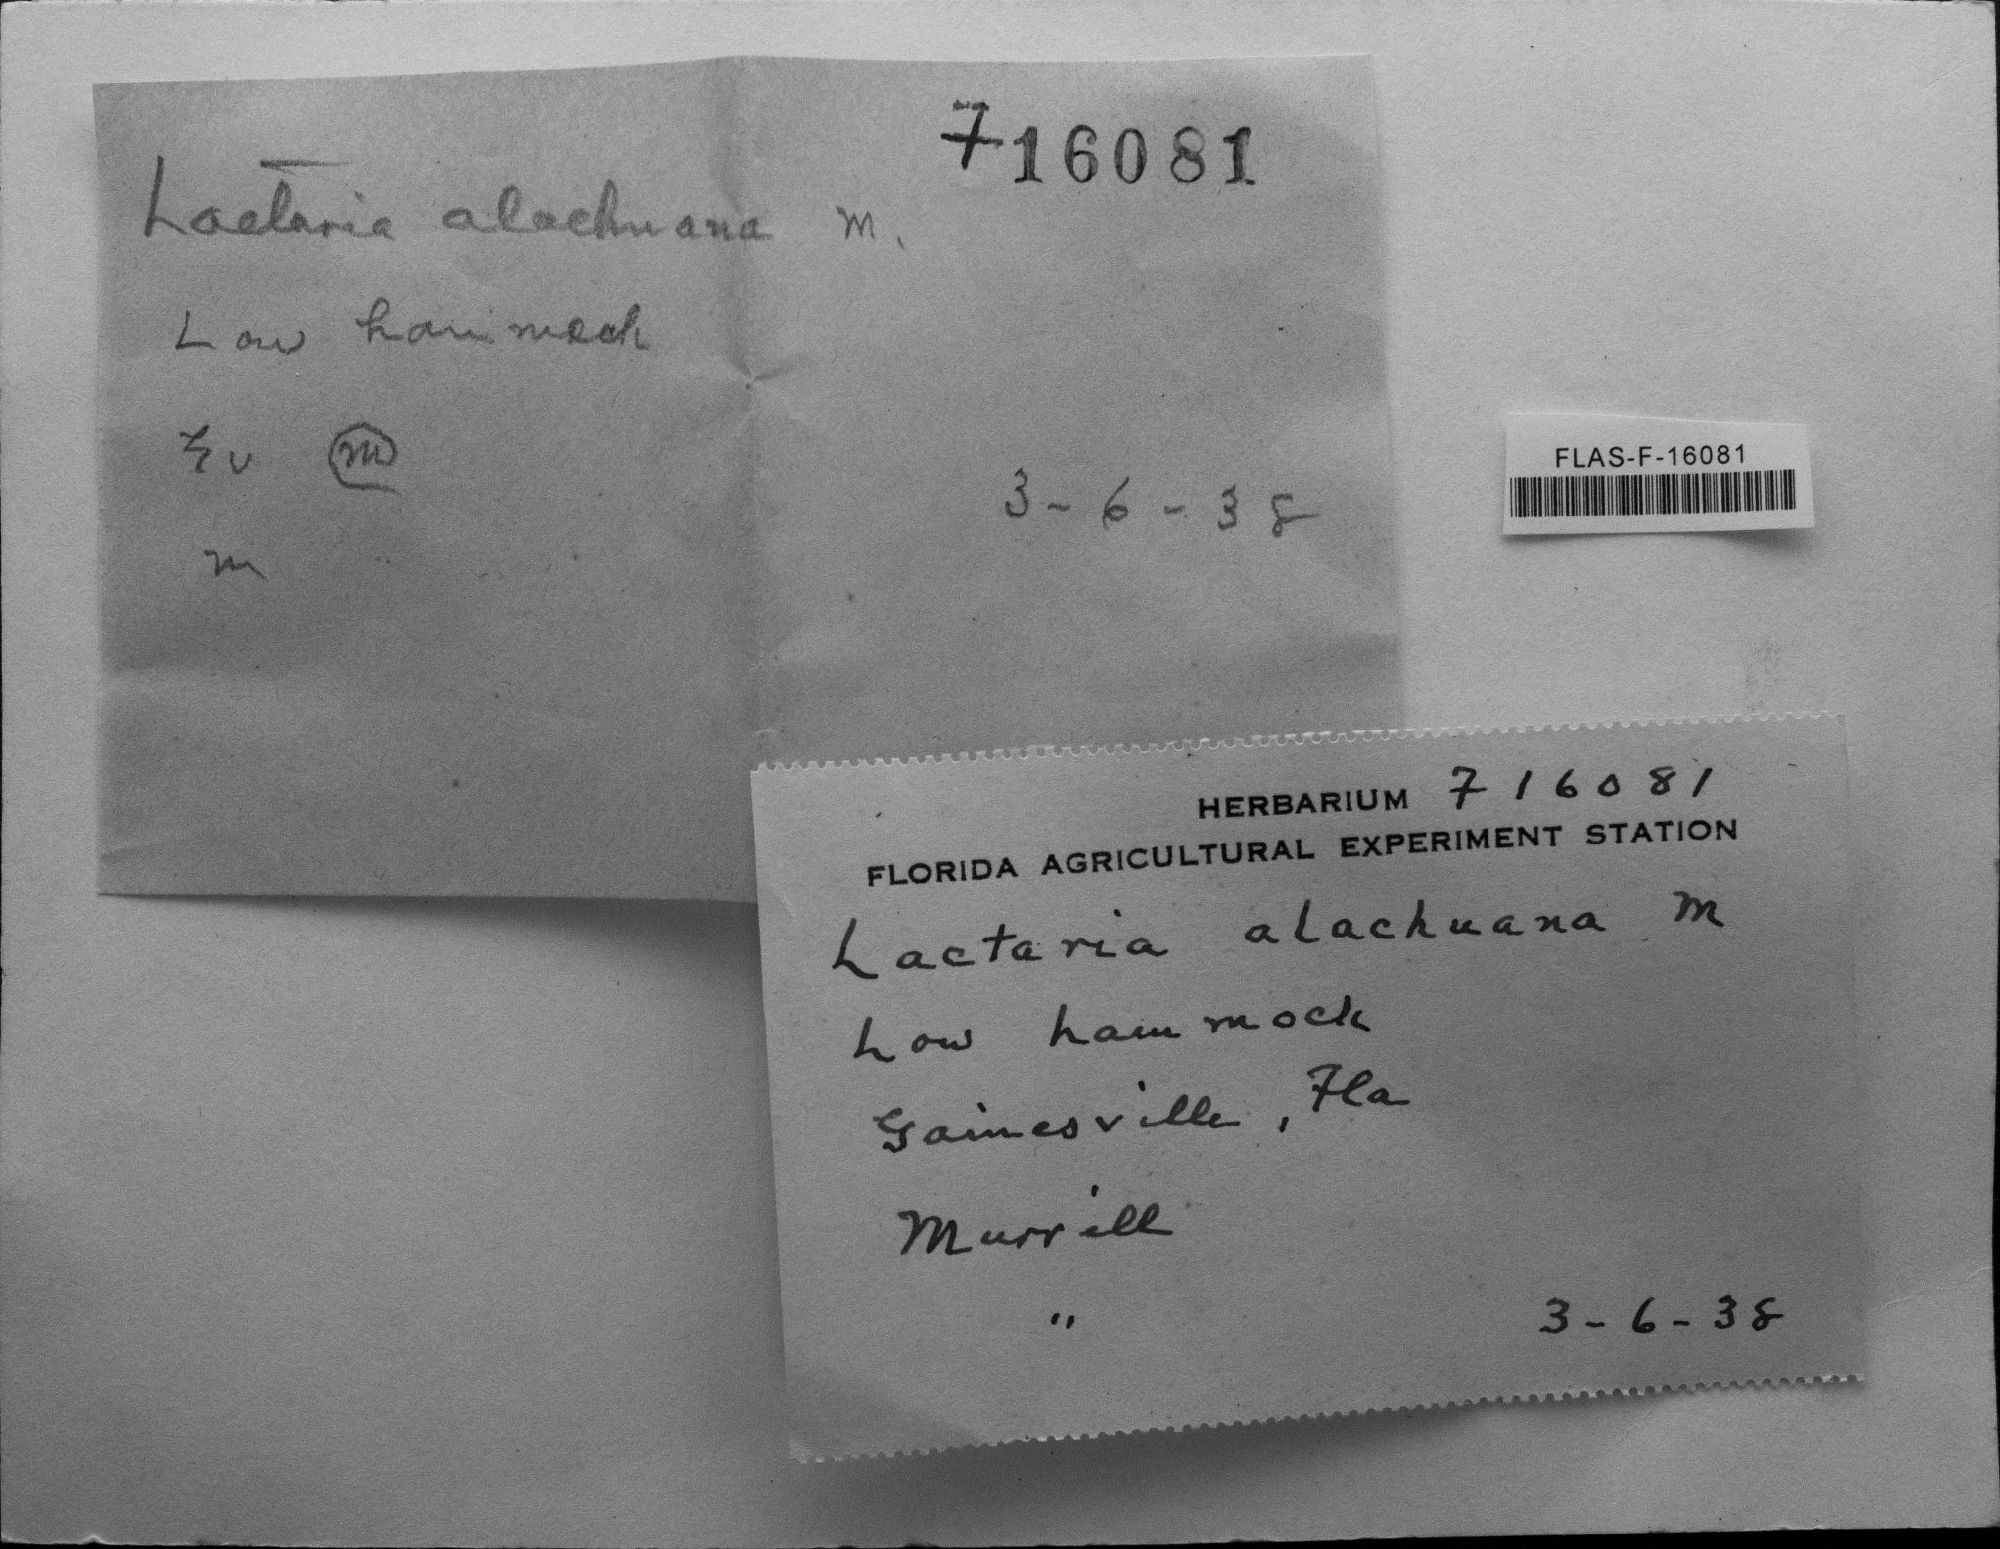 F16081
Lactaria alachuana M.
Low hammock
Gv M
3-6-38
M
FLAS-F-16081
HERBARIUM F16081
FLORIDA AGRICULTURAL EXPERIMENT STATION
Lactaria alachuana M
Low hammock
Gainesville, Fla
Murrill
"
3-6-38